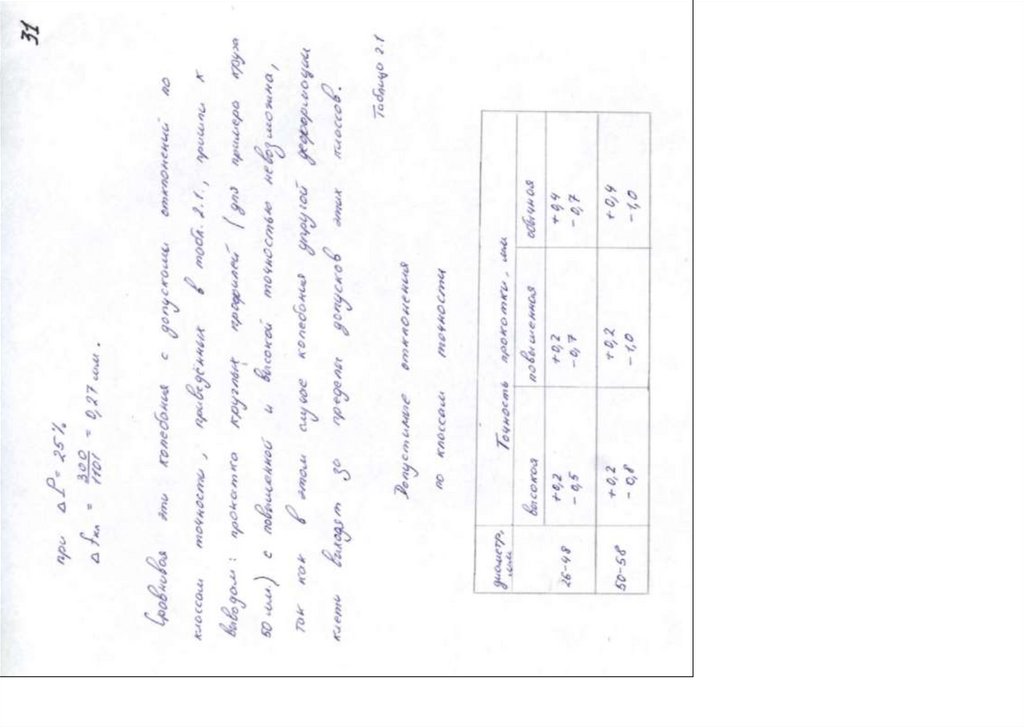 31
при ΔP = 25%
Δfкл = 300/1101 = 0,27 мм.
Сравнивая эти колебания с допусками отклонений по
классам точности, приведённых в табл. 2.1., пришли к
выводам: прокатка круглых профилей (для примера круга
50 мм) с повышенной и высокой точностью невозможна,
так как в этом случае колебания упругой деформации
клеть выходят за пределы допусков этих классов.
Таблица 2.1
Допустимые отклонения
по классам точности
диаметр, мм Точность прокатки, мм
высокая повышенная обычная
26-48 +0,2 -0,5 +0,2 -0,7 +0,4 -0,7
50-58 +0,2 -0,8 +0,2 -1,0 +0,4 -1,0